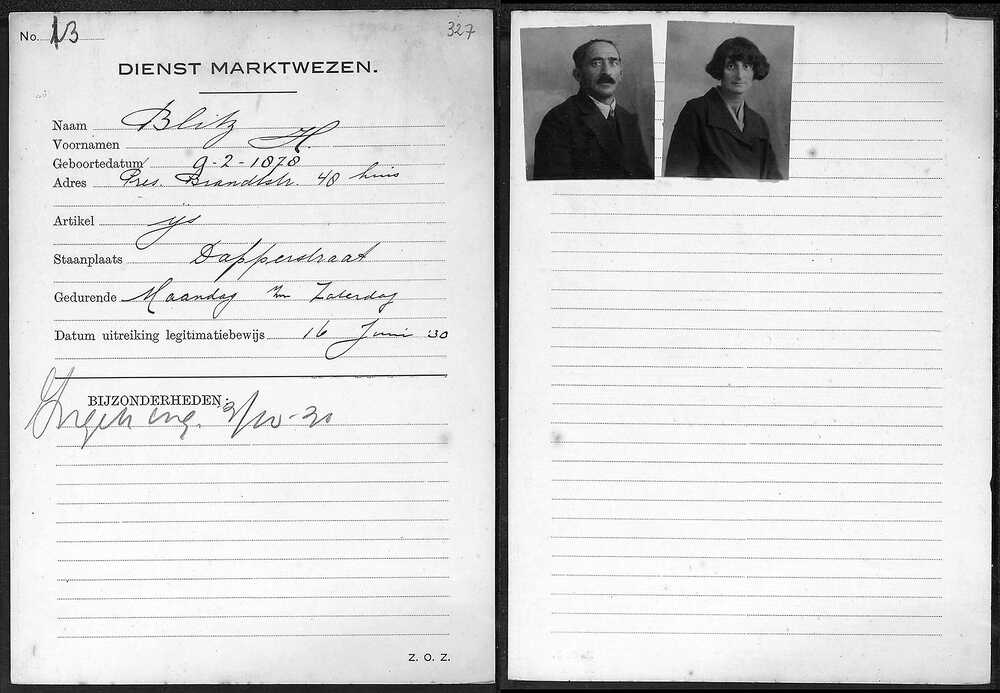 No. 13
327
DIENST MARKTWEZEN.
Naam Blitz
Voornamen H.
Geboortedatum 9-2-1878
Adres Pres. Brandtstr. 48 huis
Artikel ijs
Staanplaats Dapperstraat
Gedurende Maandag t/m Zaterdag
Datum uitreiking legitimatiebewijs 16 Juni '30
BIJZONDERHEDEN:
Z. O. Z.